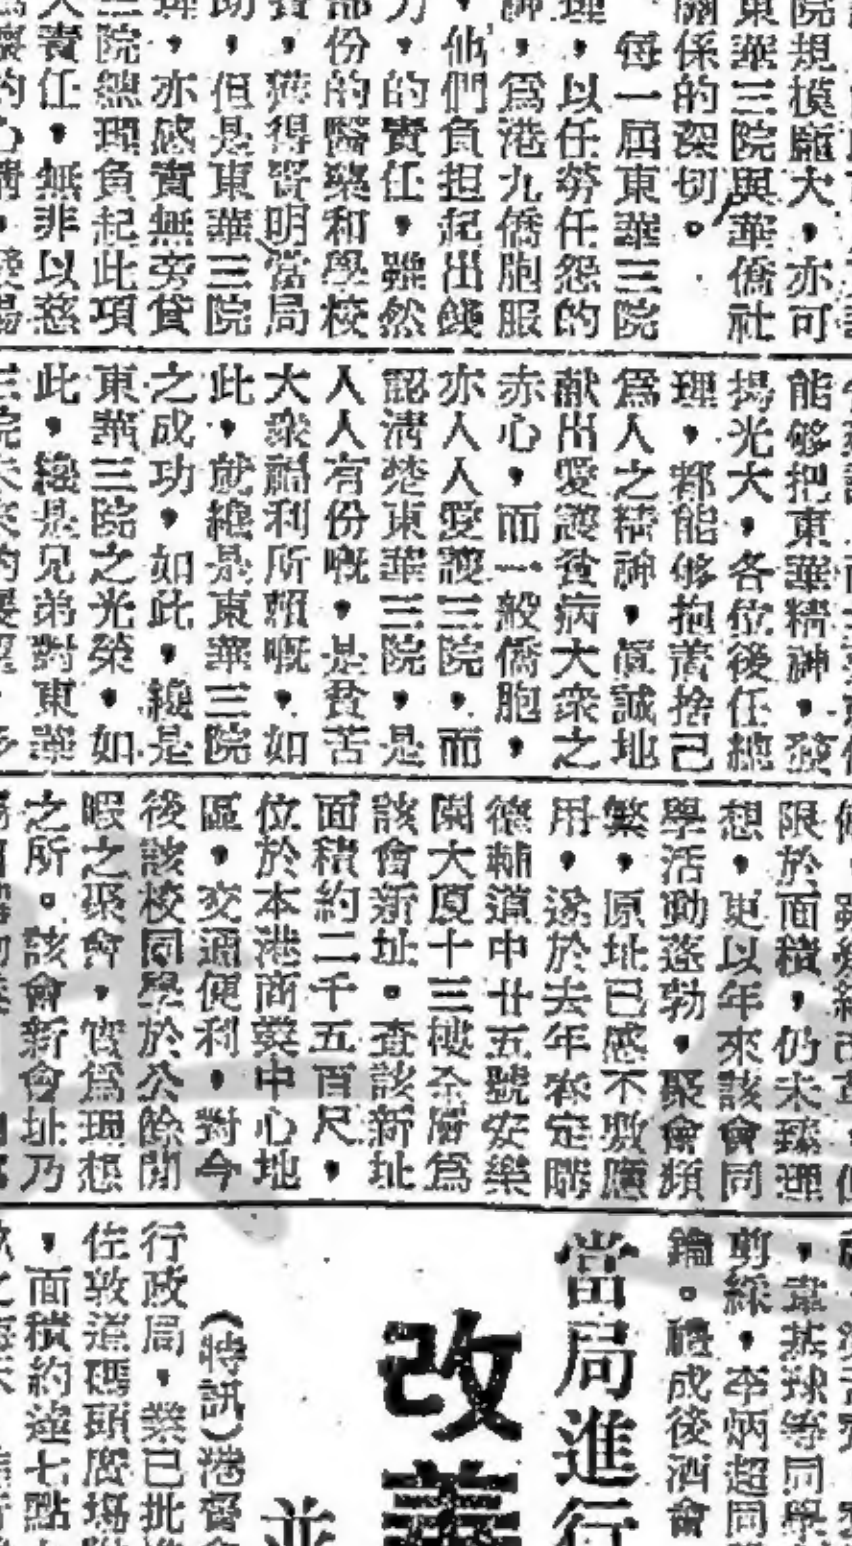 院規模龐大，亦可
東華三院與華僑社
關係的深切。
每一屆東華三院
理，以任勞任怨的
神，爲港九僑胞服
他們負担起出錢
力，的責任，雖然
部份的醫藥和學校
費，獲得賢明當局
助，但是東華三院
理，亦感責無旁貸
三院總理負起此項
責任，無非以慈
能够把東華精神，發
揚光大，各位後任總
理，都能够抱着捨己
爲人之精神，眞誠地
献出愛護貧病大衆之
赤心，而一般僑胞，
亦人人愛護三院，而
認淸楚東華三院，是
人人有份嘅，是貧苦
大衆福利所賴嘅，如
此，就總是東華三院
之成功，如此，總是
東華三院之光榮，如
此，總是兄弟對東華
限於面積，仍未臻理
想，更以年來該會同
學活動蓬勃，聚會頻
繁，原址已感不敷應
用，遂於去年春定購
德輔道中廿五號安樂
園大厦十三樓全層爲
該會新址。查該新址
面積約二千五百尺，
位於本港商業中心地
區，交通便利，對今
後該校同學於公餘閒
暇之聚會，實爲理想
之所。該會新會址乃
，韋基球等同學
剪綵，李炳超同
鑰。禮成後酒會
當局進行
改善
並
（特訊）港督會
行政局，業已批准
佐敦道碼頭廣場
，面積約達七點